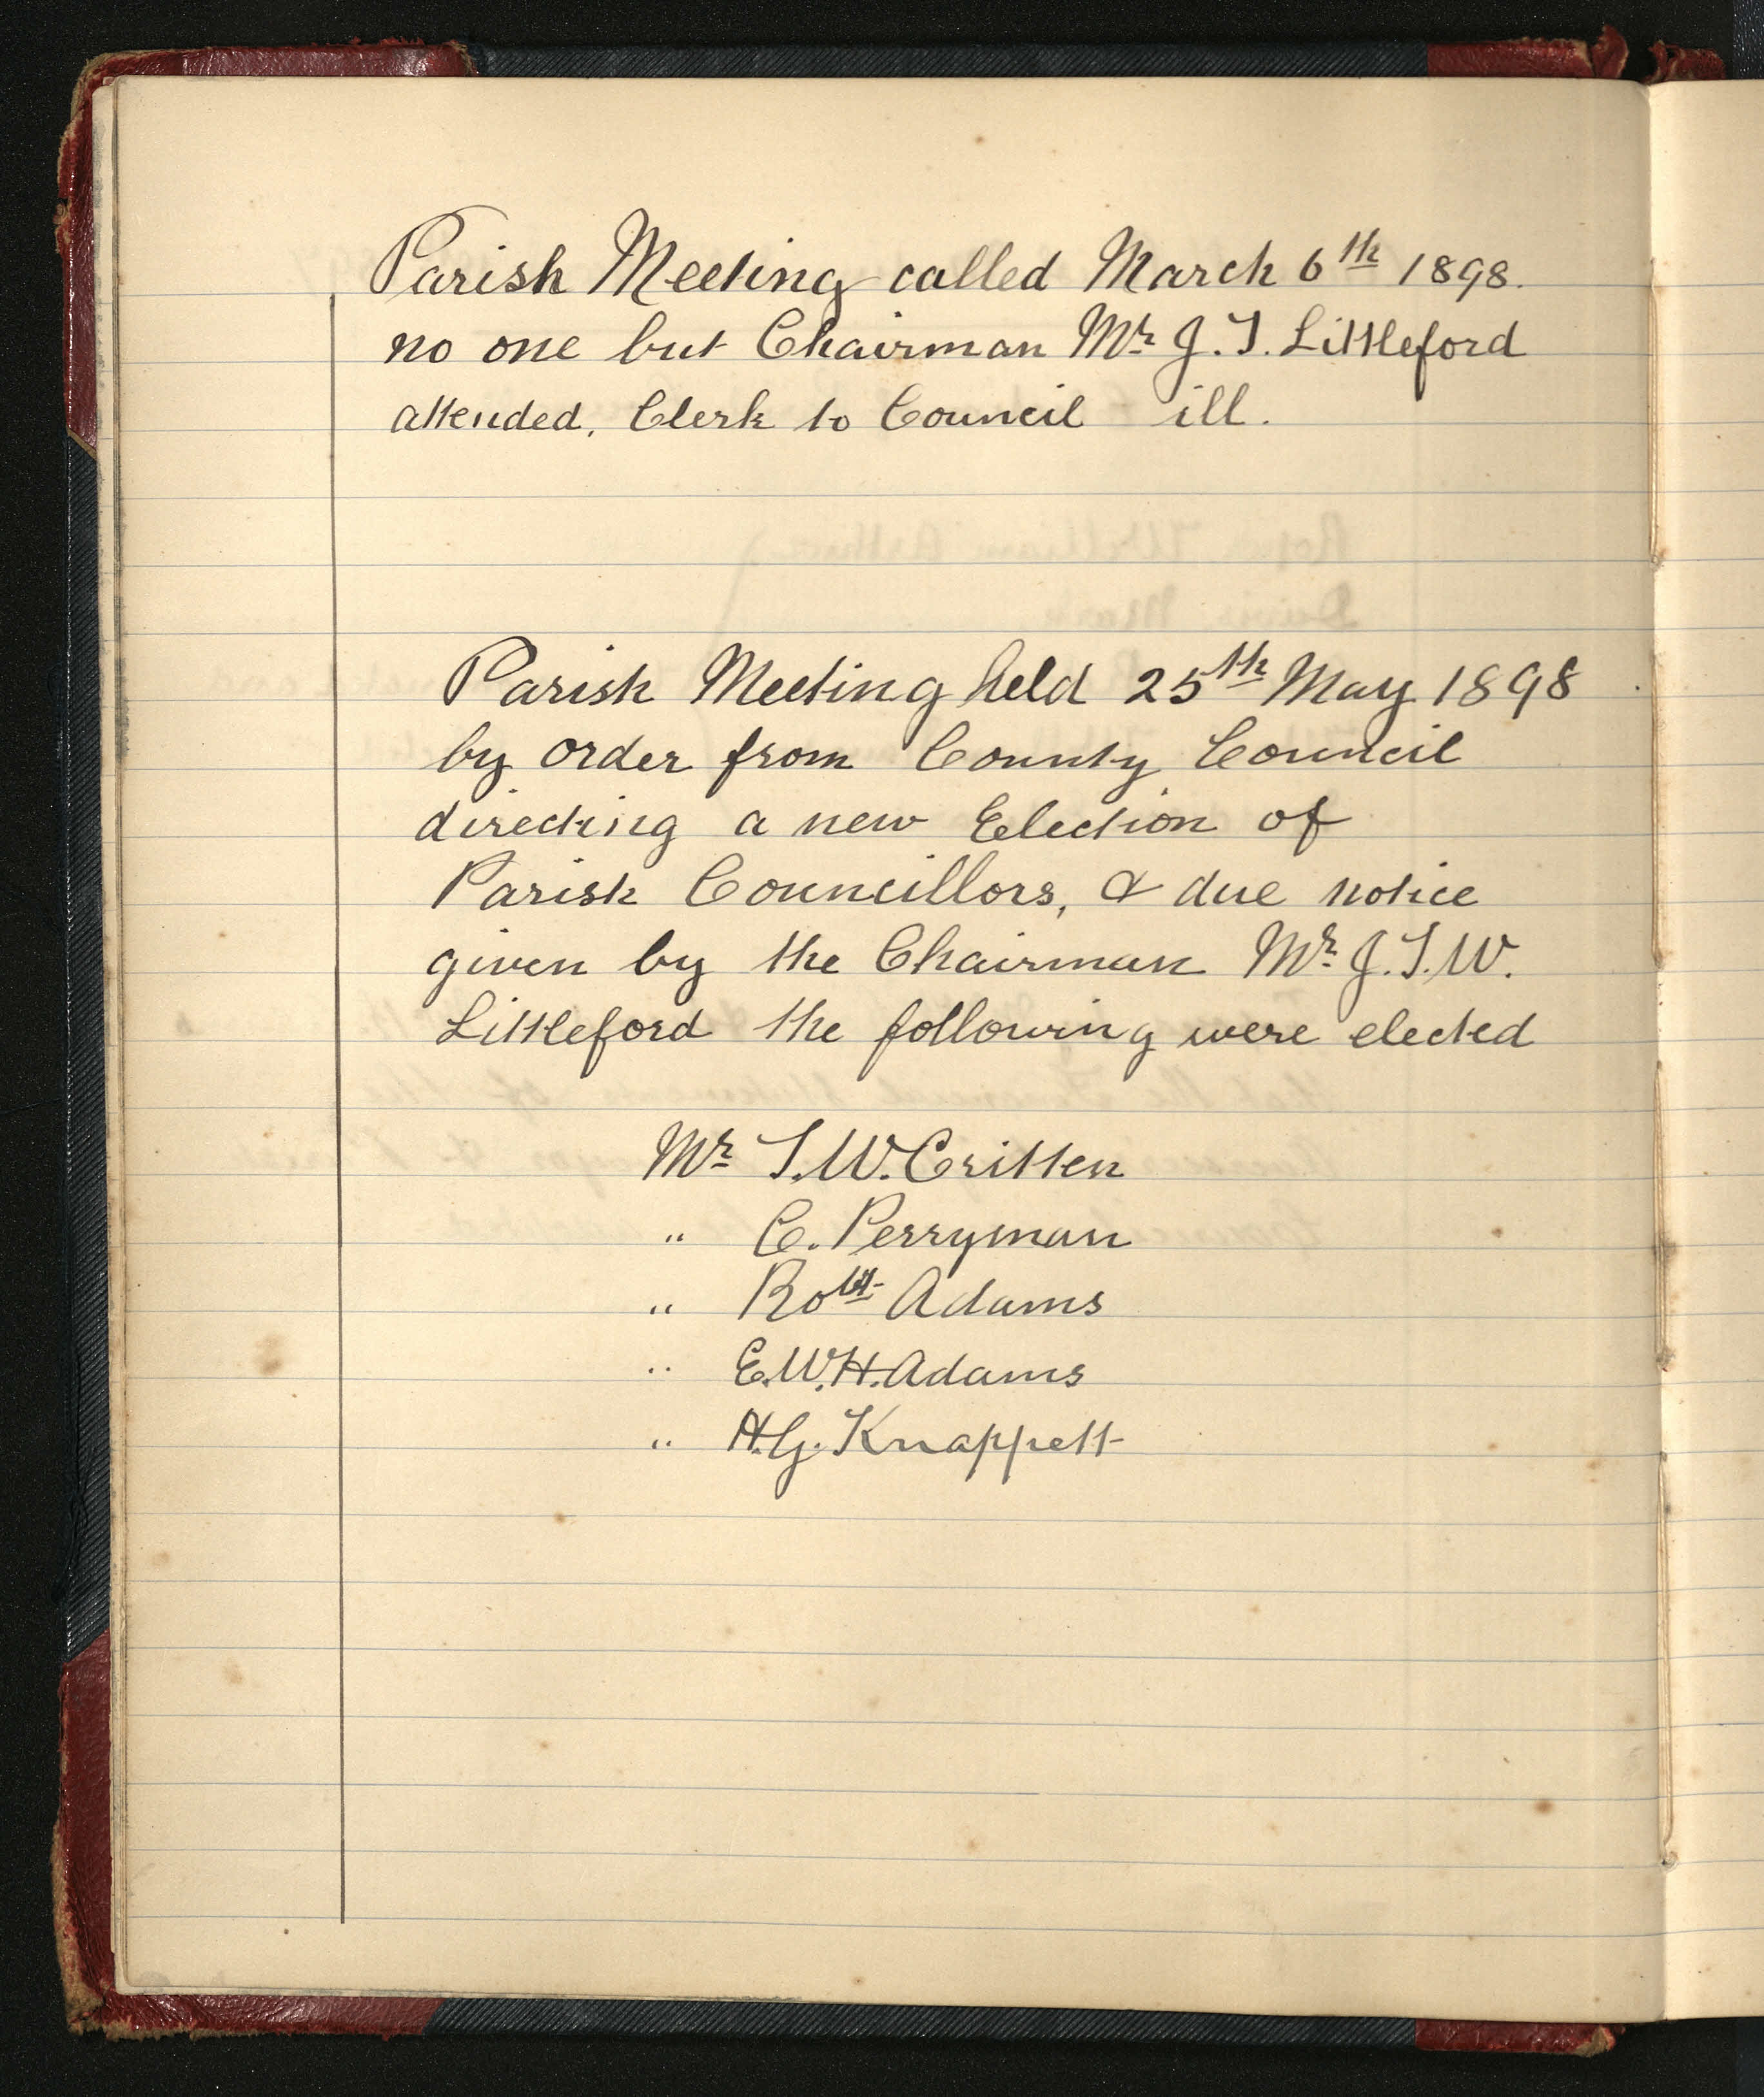 Parish Meeting called March 6th 1898.
no one but Chairman Mr J. T. Littleford
attended, Clerk to Council ill.
Parish Meeting held 25th May 1898
by order from County Council
directing a new Election of
Parish Councillors, & due notice
given by the Chairman Mr J. T. W.
Littleford the following were elected
Mr T. W. Critten
" C. Perryman
" Robt. Adams
" E. W. H. Adams
" H. G. Knappett